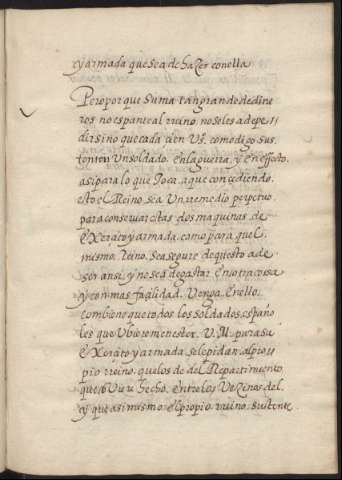 ry armada que sea de hazer con ella
Pero porque suma tan grande de dine
ros no espante al rreino, no se les a de pe
dir sino que cada cien Vs, como digo sus
tenten Un soldado, en la guerra, y en effecto,
asi para lo que toca, a que concediendo,
esto el Reino, sea Un rremedio perpetuo,
para conseruar estas dos maquinas de
exercito y armada, como para que el
mismo, rreino, sea seguro de que esto a de
ser ansi, y no se a de gastar en otra cosa
y con mas façilidad, Venga, en ello,
combiene que todos los soldados, españo
les que Vbiere menester, V.M. para su
exercito y armada se le pidan al pro
pio rreino, que los de del Repartimiento,
que se Vbiere hecho, entre los Vezinos del
y que asimismo, el propio, rreino, sustente